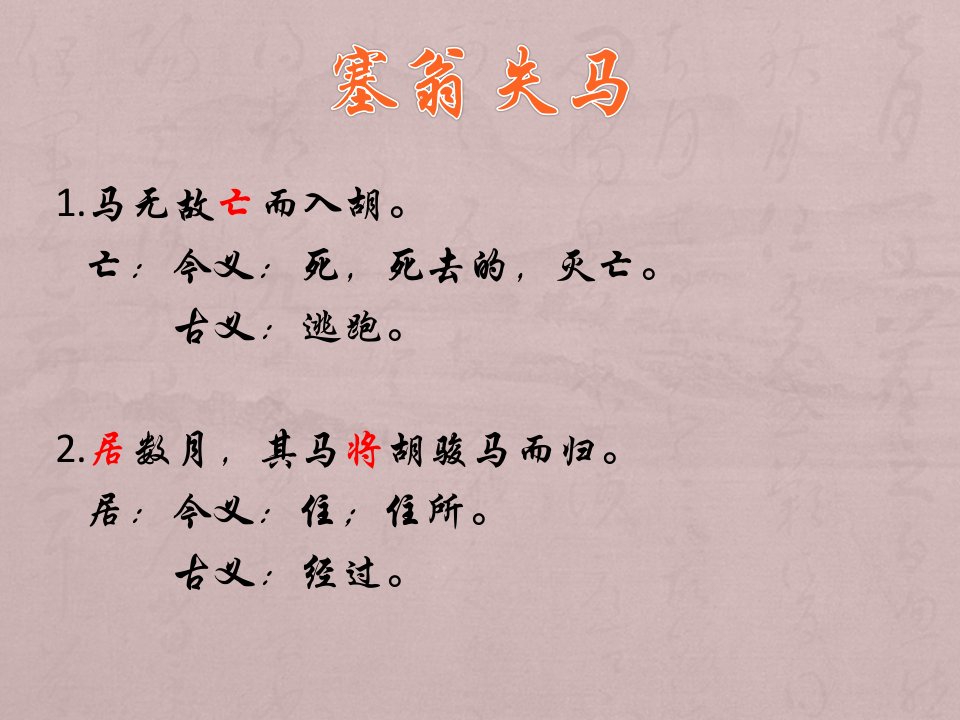 塞翁失马
1.马无故亡而入胡。
亡：今义：死，死去的，灭亡。
古义：逃跑。
2.居数月，其马将胡骏马而归。
居：今义：住；住所。
古义：经过。